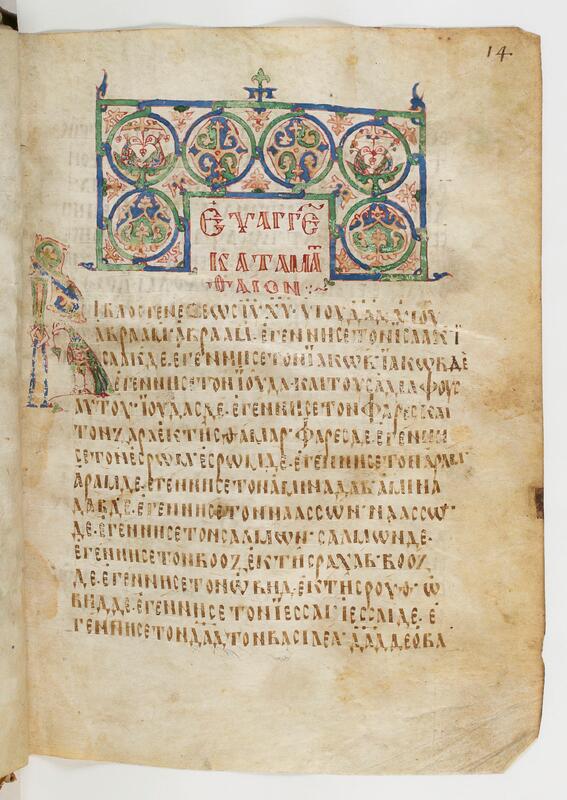 14
ΕΥΑΓΓΕ
ΚΑΤΑΜΑ
ΘΑΙΟΝ
ΙΒΛΟCΓΕΝΕCΕΩC ΙΥ ΧΥ· ΥΙΟΥ ΔΑΔ· ΥΙΟΥ
ΑΒΡΑΑΜ· ΑΒΡΑΑΜ· ΕΓΕΝΝΙCΕΤΟΝΙCΑΑΚ· Ϊ
CΑΑΚΔΕ· ΕΓΕΝΝΙCΕΤΟΝΪΑΚΩΒ· ΪΑΚΩΒΔΕ
ΕΓΕΝΝΙCΕΤΟΝΪΟΥΔΑ· ΚΑΙΤΟΥCΑΔΕΛΦΟΥC
ΑΥΤΟΥ· ΪΟΥΔΑCΔΕ· ΕΓΕΝΝΙCΕΤΟΝΦΑΡΕCΚΑΙ
ΤΟΝΖΑΡΑΕΚΤΗCΘΑΜΑΡ· ΦΑΡΕCΔΕ· ΕΓΕΝΝΙ
CΕΤΟΝΕCΡΩΜ· ΕCΡΩΜΔΕ· ΕΓΕΝΝΙCΕΤΟΝΑΡΑΜ·
ΑΡΑΜΔΕ· ΕΓΕΝΝΙCΕΤΟΝΑΜΙΝΑΔΑΒ· ΑΜΙΝΑ
ΔΑΒΔΕ· ΕΓΕΝΝΙCΕΤΟΝΝΑΑCCΩΝ· ΝΑΑCCΩ
ΔΕ· ΕΓΕΝΝΙCΕΤΟΝCΑΛΜΩΝ· CΑΛΜΩΝΔΕ·
ΕΓΕΝΝΙCΕΤΟΝΒΟΟΖ· ΕΚΤΗCΡΑΧΑΒ· ΒΟΟΖ
ΔΕ· ΕΓΕΝΝΙCΕΤΟΝΩΒΗΔ· ΕΚΤΗCΡΟΥΘ· Ω
ΒΗΔΔΕ· ΕΓΕΝΝΙCΕΤΟΝΪΕCCΑΙ· ΙΕCCΑΙΔΕ· Ε
ΓΕΝΝΙCΕΤΟΝΔΑΔΤΟΝΒΑCΙΛΕΑ· ΔΑΔΔΕΟΒΑ